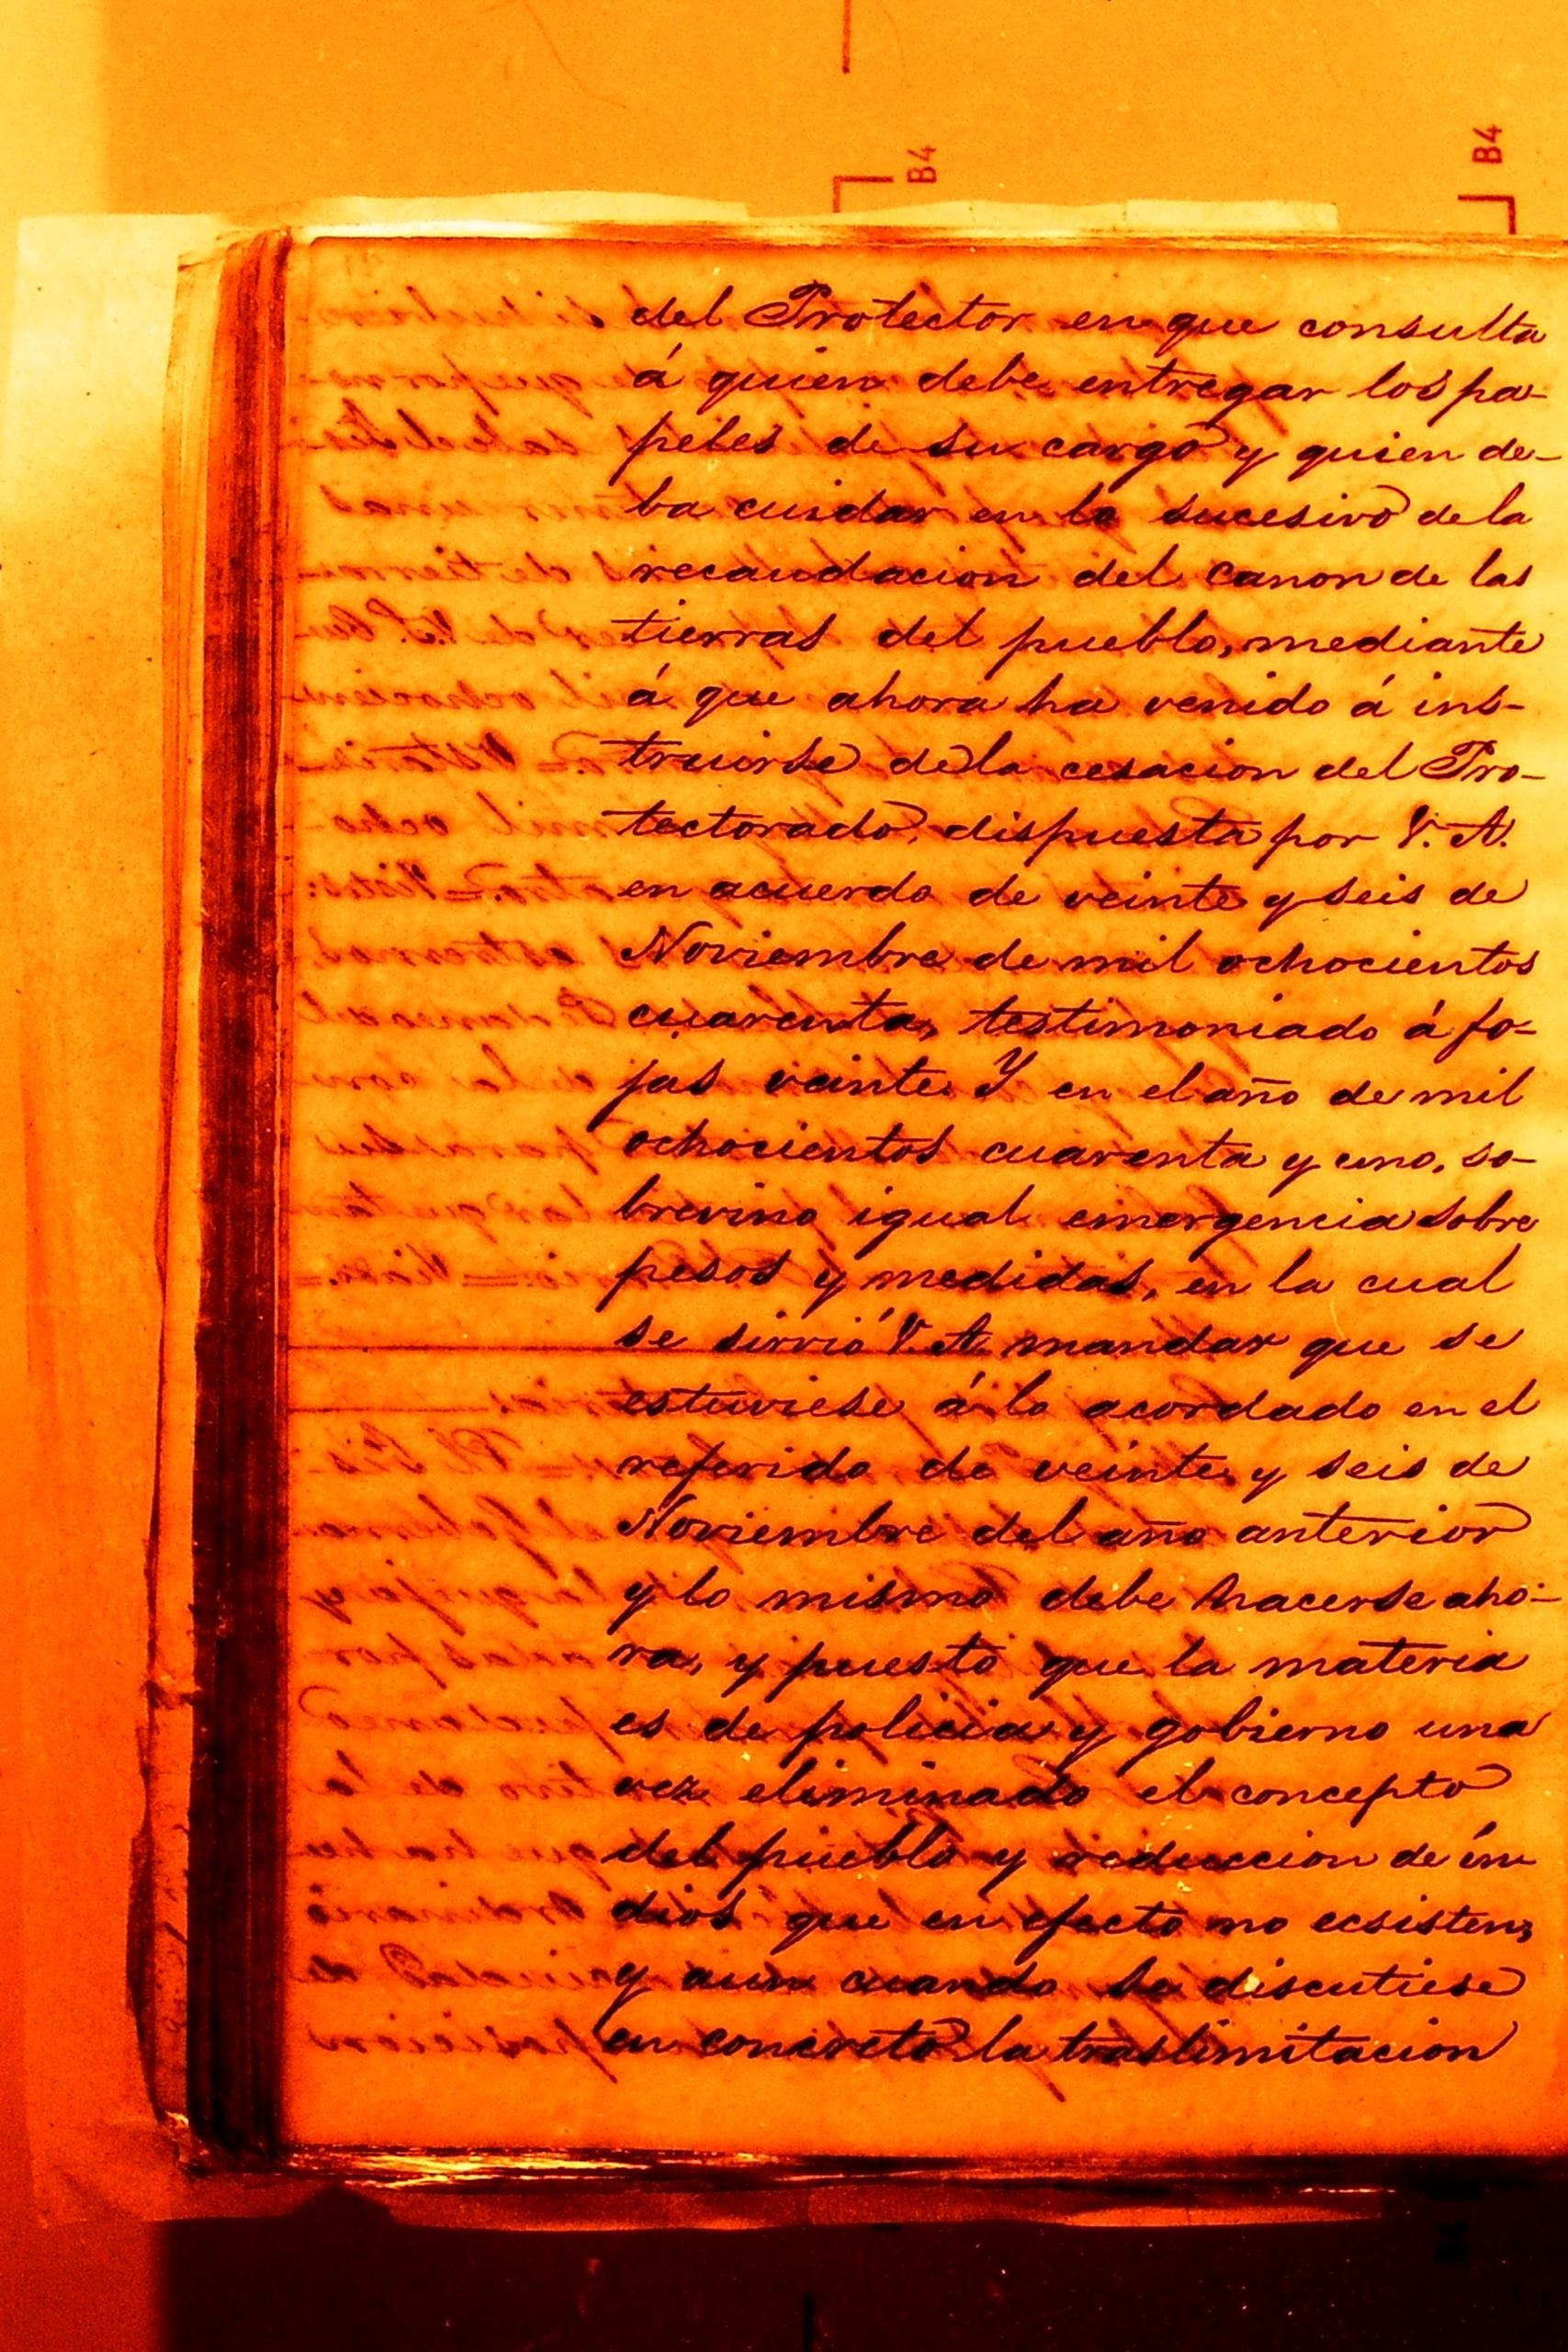 B4
B4
del Protector en que consulta
á quien debe entregar los pa-
peles de su cargo y quien de-
ba cuidar en lo sucesivo de la
recaudacion del canon de las
tierras del pueblo, mediante
á que ahora ha venido á ins-
truirse de la cesacion del Pro-
tectorado, dispuesta por V. A.
en acuerdo de veinte y seis de
Noviembre de mil ochocientos
cuarenta, testimoniado á fo-
jas veinte. Y en el año de mil
ochocientos cuarenta y uno, so-
brevino igual emergencia sobre
pesos y medidas, en la cual
se sirvió V. A. mandar que se
estuviese á lo acordado en el
referido de veinte y seis de
Noviembre del año anterior
y lo mismo debe hacerse aho-
ra, y puesto que la materia
es de policia y gobierno una
vez eliminado el concepto
del pueblo y reduccion de in-
dios que en efecto no ecsisten,
y aun cuando se discutiese
en concreto la traslimitacion